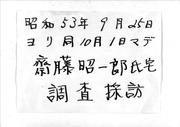 昭和53年9月25日
ヨリ同10月1日マデ
齋藤昭一郎氏宅
調査採訪